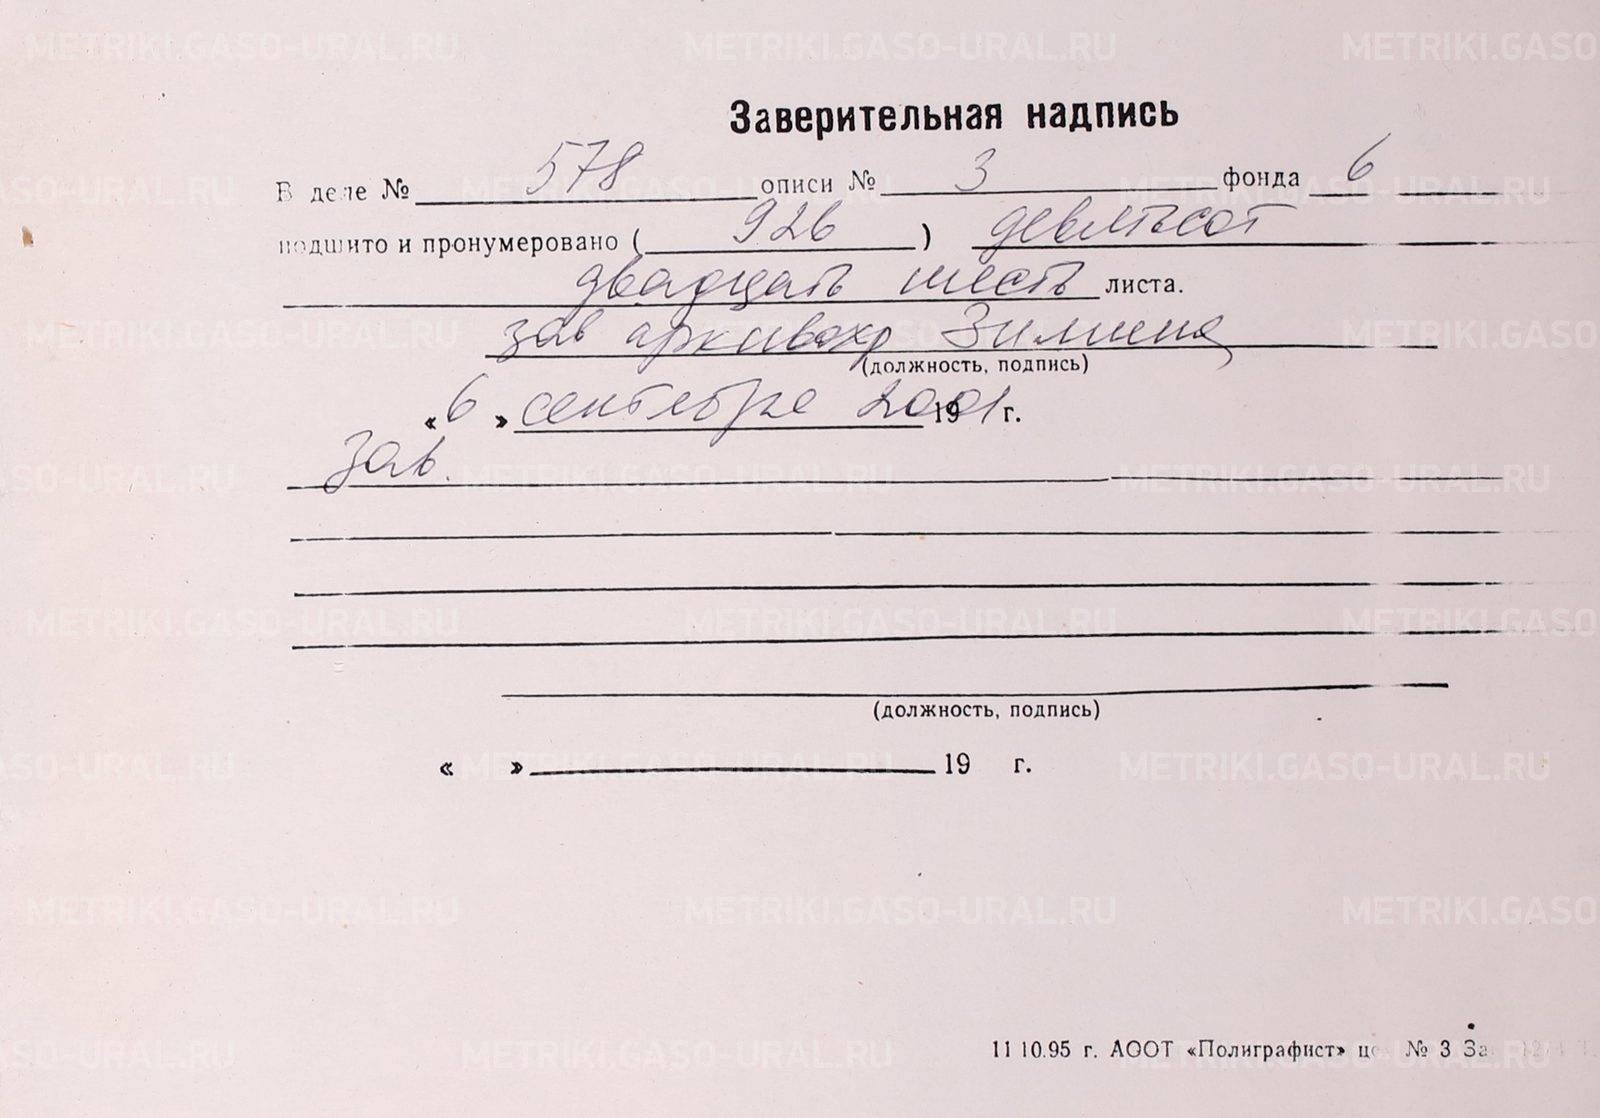 METRIKI.GASO-URAL.RU METRIKI.GASO-URAL.RU METRIKI.GASO
Заверительная надпись
В деле № 578 описи № 3 фонда 6
подшито и пронумеровано ( 926 ) девятьсот
двадцать шесть листа.
зав архивохр Зимина
(должность, подпись)
« 6 » сентября 2001 19 г.
Зав.
(должность, подпись)
« » 19 г.
11 10.95 г. АООТ «Полиграфист» це № 3 За